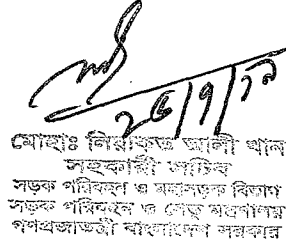 ২৬/৭/১৭
মোহাঃ লিয়াকত আলী খান
সহকারী সচিব
সড়ক পরিবহন ও মহাসড়ক বিভাগ
সড়ক পরিবহন ও সেতু মন্ত্রণালয়
গণপ্রজাতন্ত্রী বাংলাদেশ সরকার